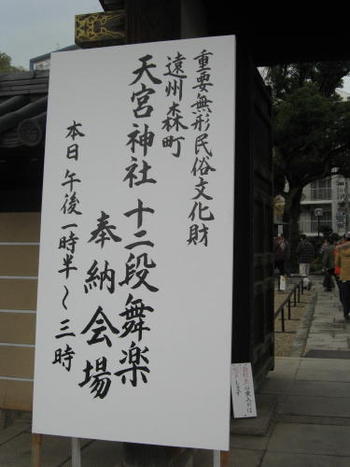 重要無形民俗文化財
遠州森町
天宮神社 十二段舞楽
奉納会場
本日 午後一時半～三時